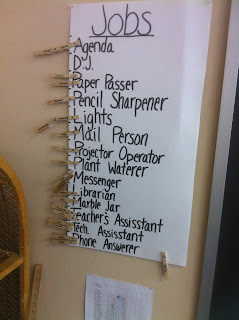 Jobs
Agenda
D.J.
Paper Passer
Pencil Sharpener
Lights
Mail Person
Projector Operator
Plant Waterer
Messenger
Librarian
Marble Jar
Teacher's Assisstant
Tech. Assisstant
Phone Answerer